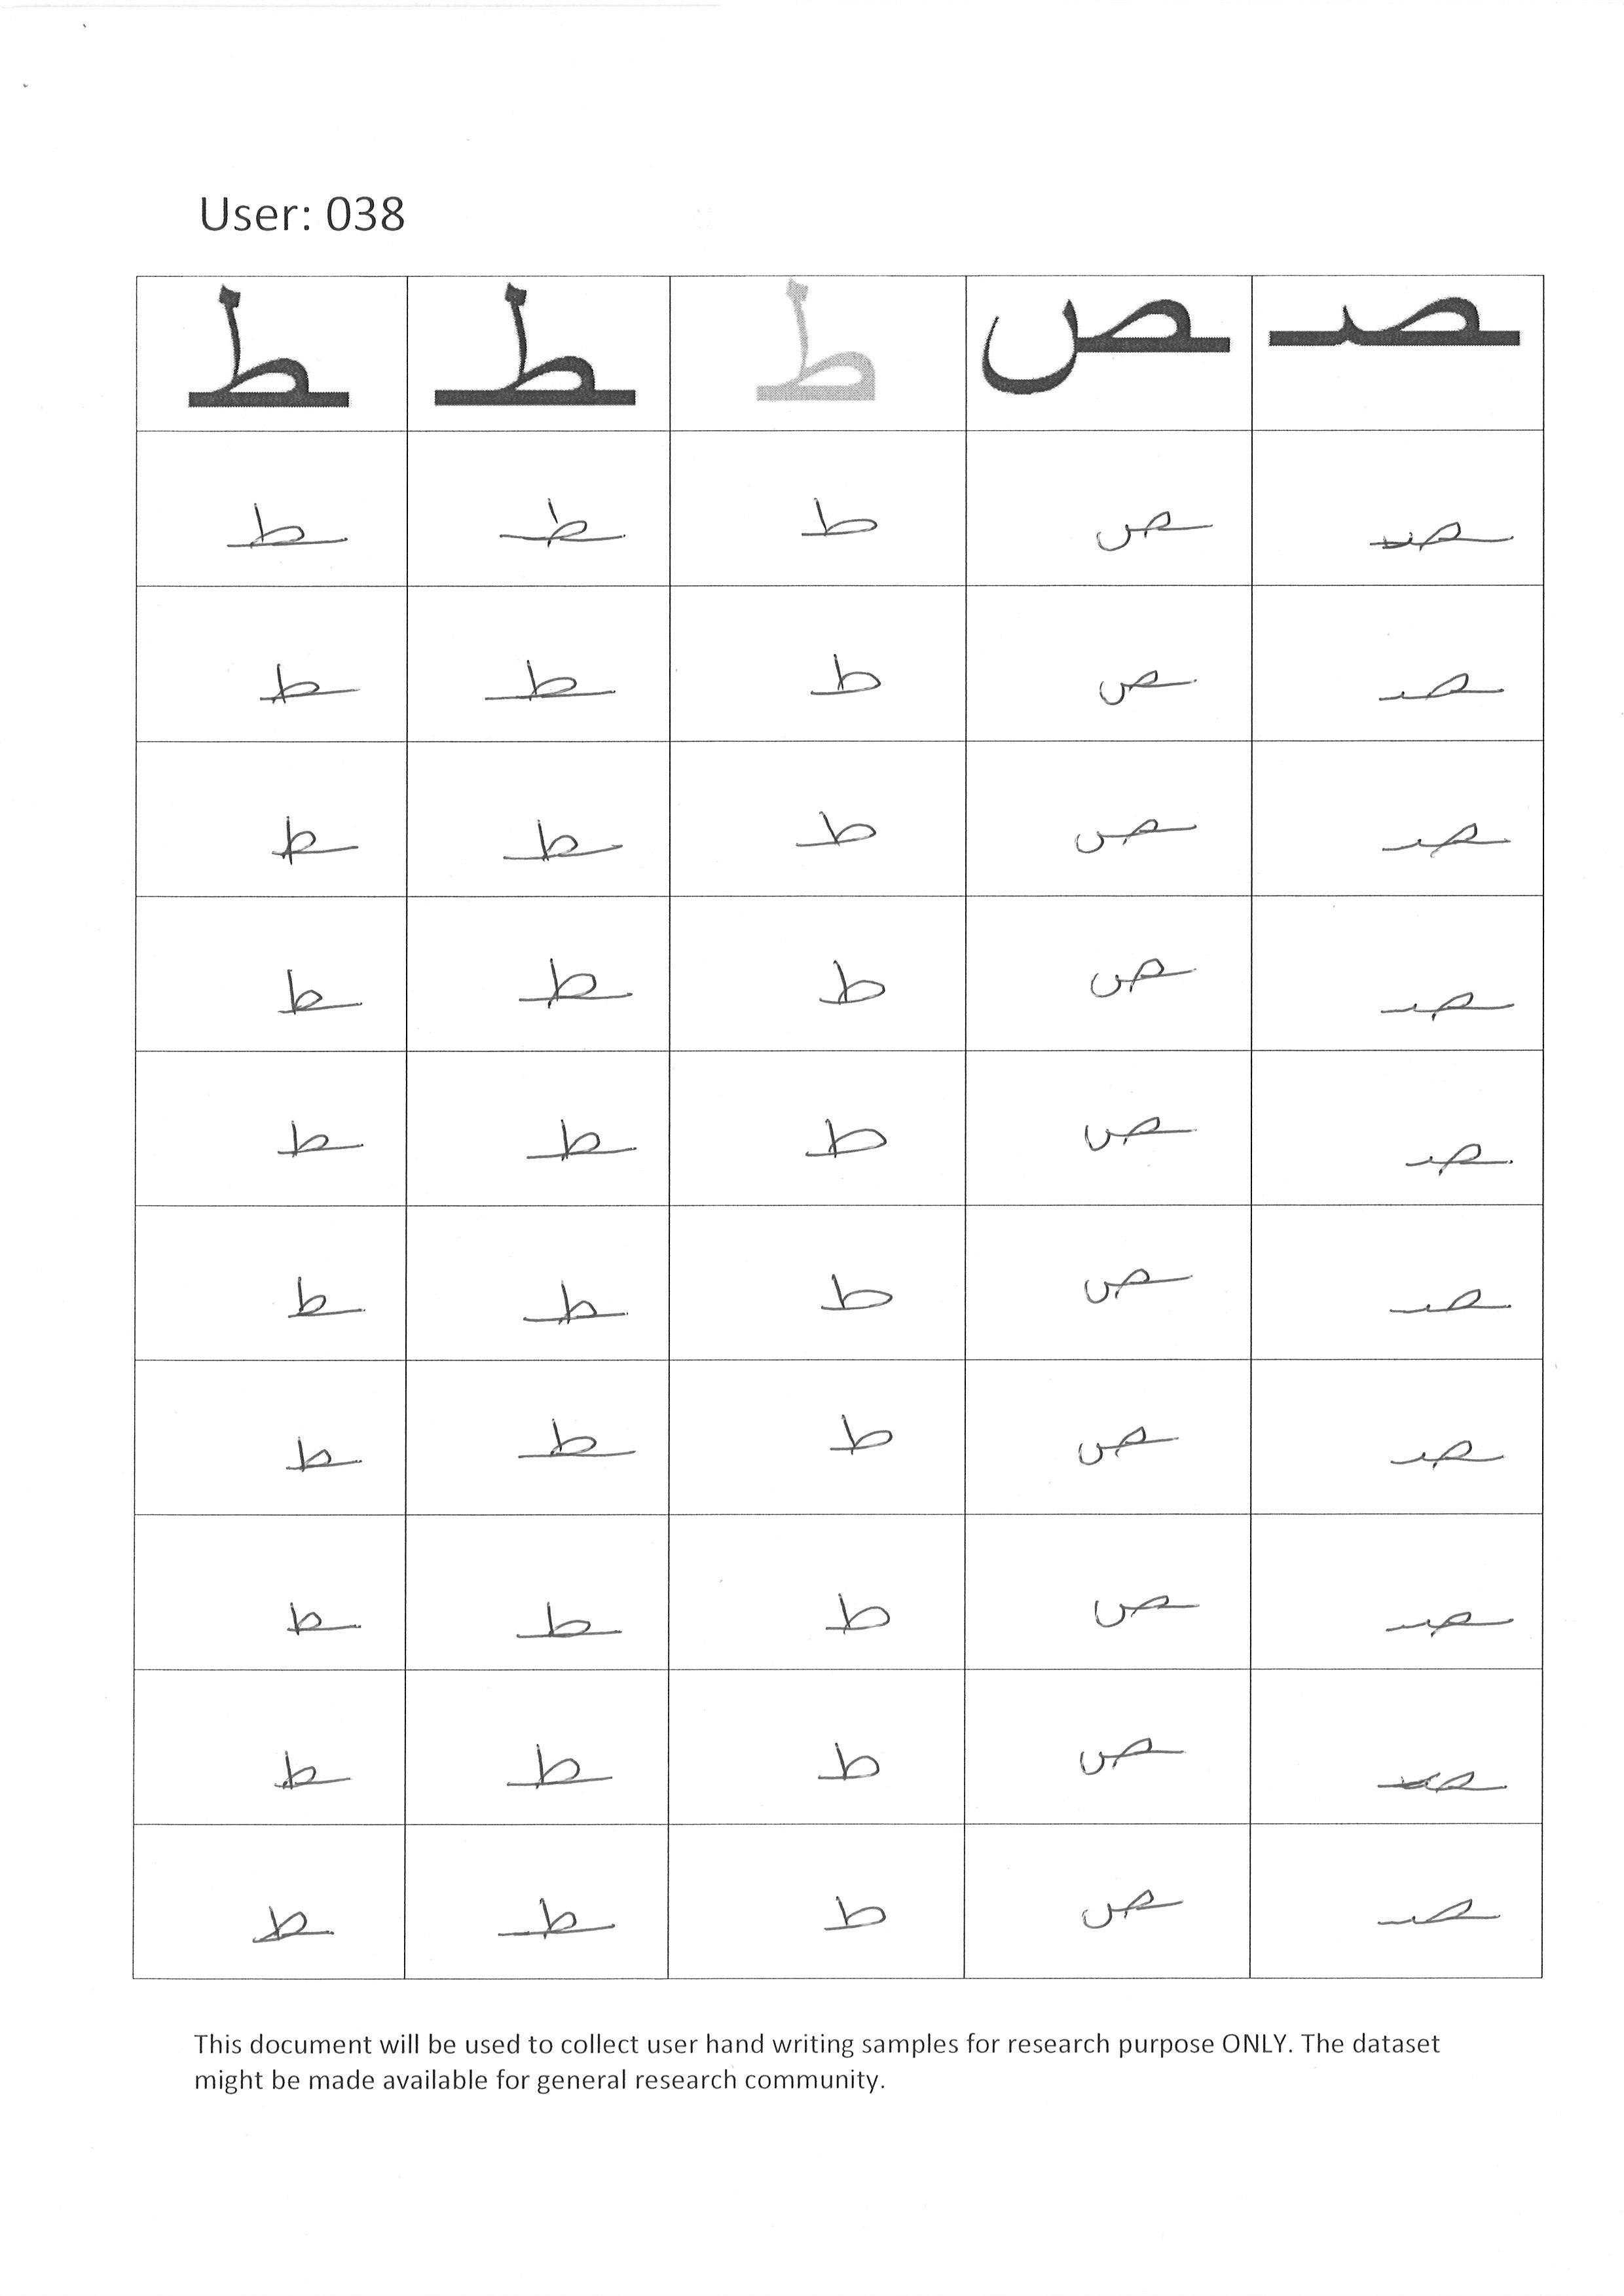 User: 038
ـصـ ـص ط ـطـ ـط
ـصـ ـص ط ـطـ ـط
ـصـ ـص ط ـطـ ـط
ـصـ ـص ط ـطـ ـط
ـصـ ـص ط ـطـ ـط
ـصـ ـص ط ـطـ ـط
ـصـ ـص ط ـطـ ـط
ـصـ ـص ط ـطـ ـط
ـصـ ـص ط ـطـ ـط
ـصـ ـص ط ـطـ ـط
ـصـ ـص ط ـطـ ـط
This document will be used to collect user hand writing samples for research purpose ONLY. The dataset
might be made available for general research community.